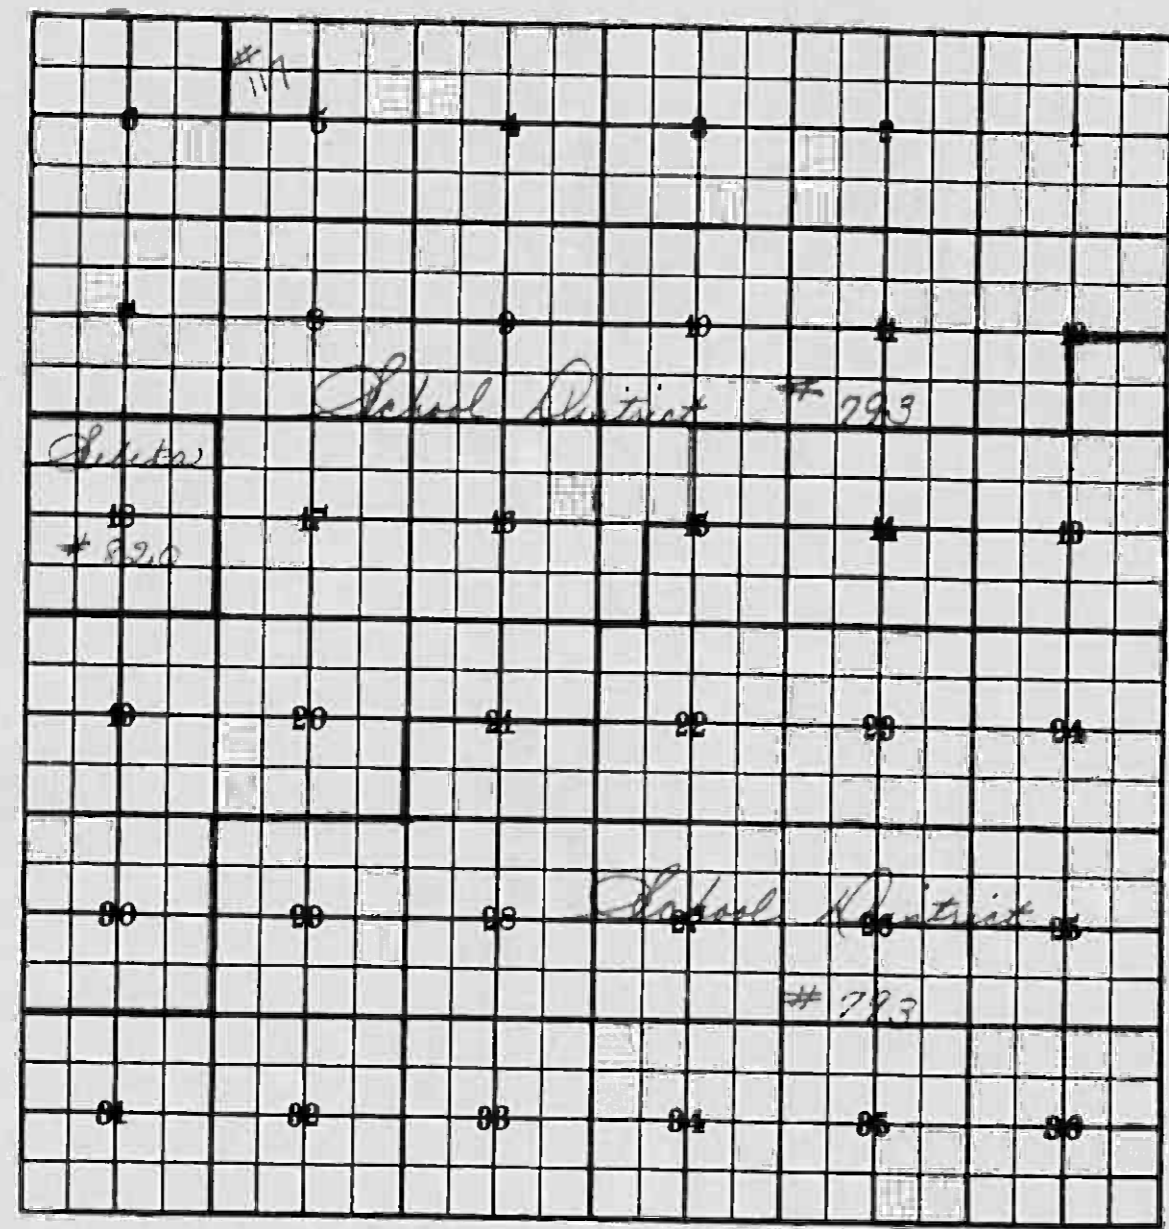 # 117
6 5 4 3 2 1
7 8 9 10 11 12
School District # 793
18 17 16 15 14 13
# 820
19 20 21 22 23 24
30 29 28 27 26 25
School District
# 793
31 32 33 34 35 36